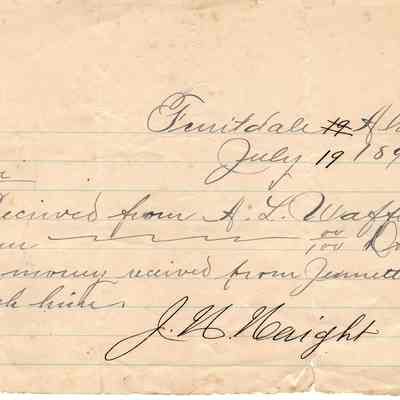 Fruitdale 19 Al
July 19 189
Received from A. L. Waff
00/100 Do
money reived from Jennett

J. N. Naight